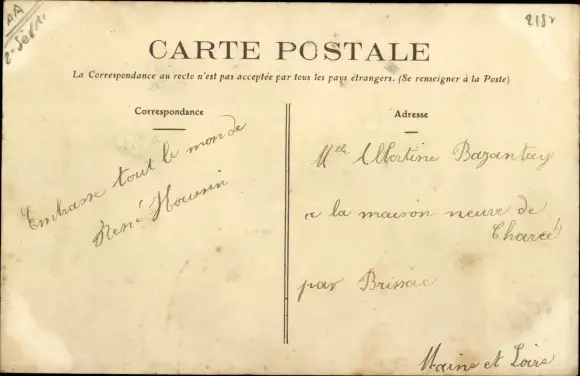 AA
2-Sèv.
218
CARTE POSTALE
La Correspondance au recto n'est pas acceptée par tous les pays étrangers. (Se renseigner à la Poste)
Correspondance
Embrasse tout le monde
René Houssin
Adresse
Mlle Albertine Bazantay
a la maison neuve de
Charcé
par Brissac
Maine et Loire